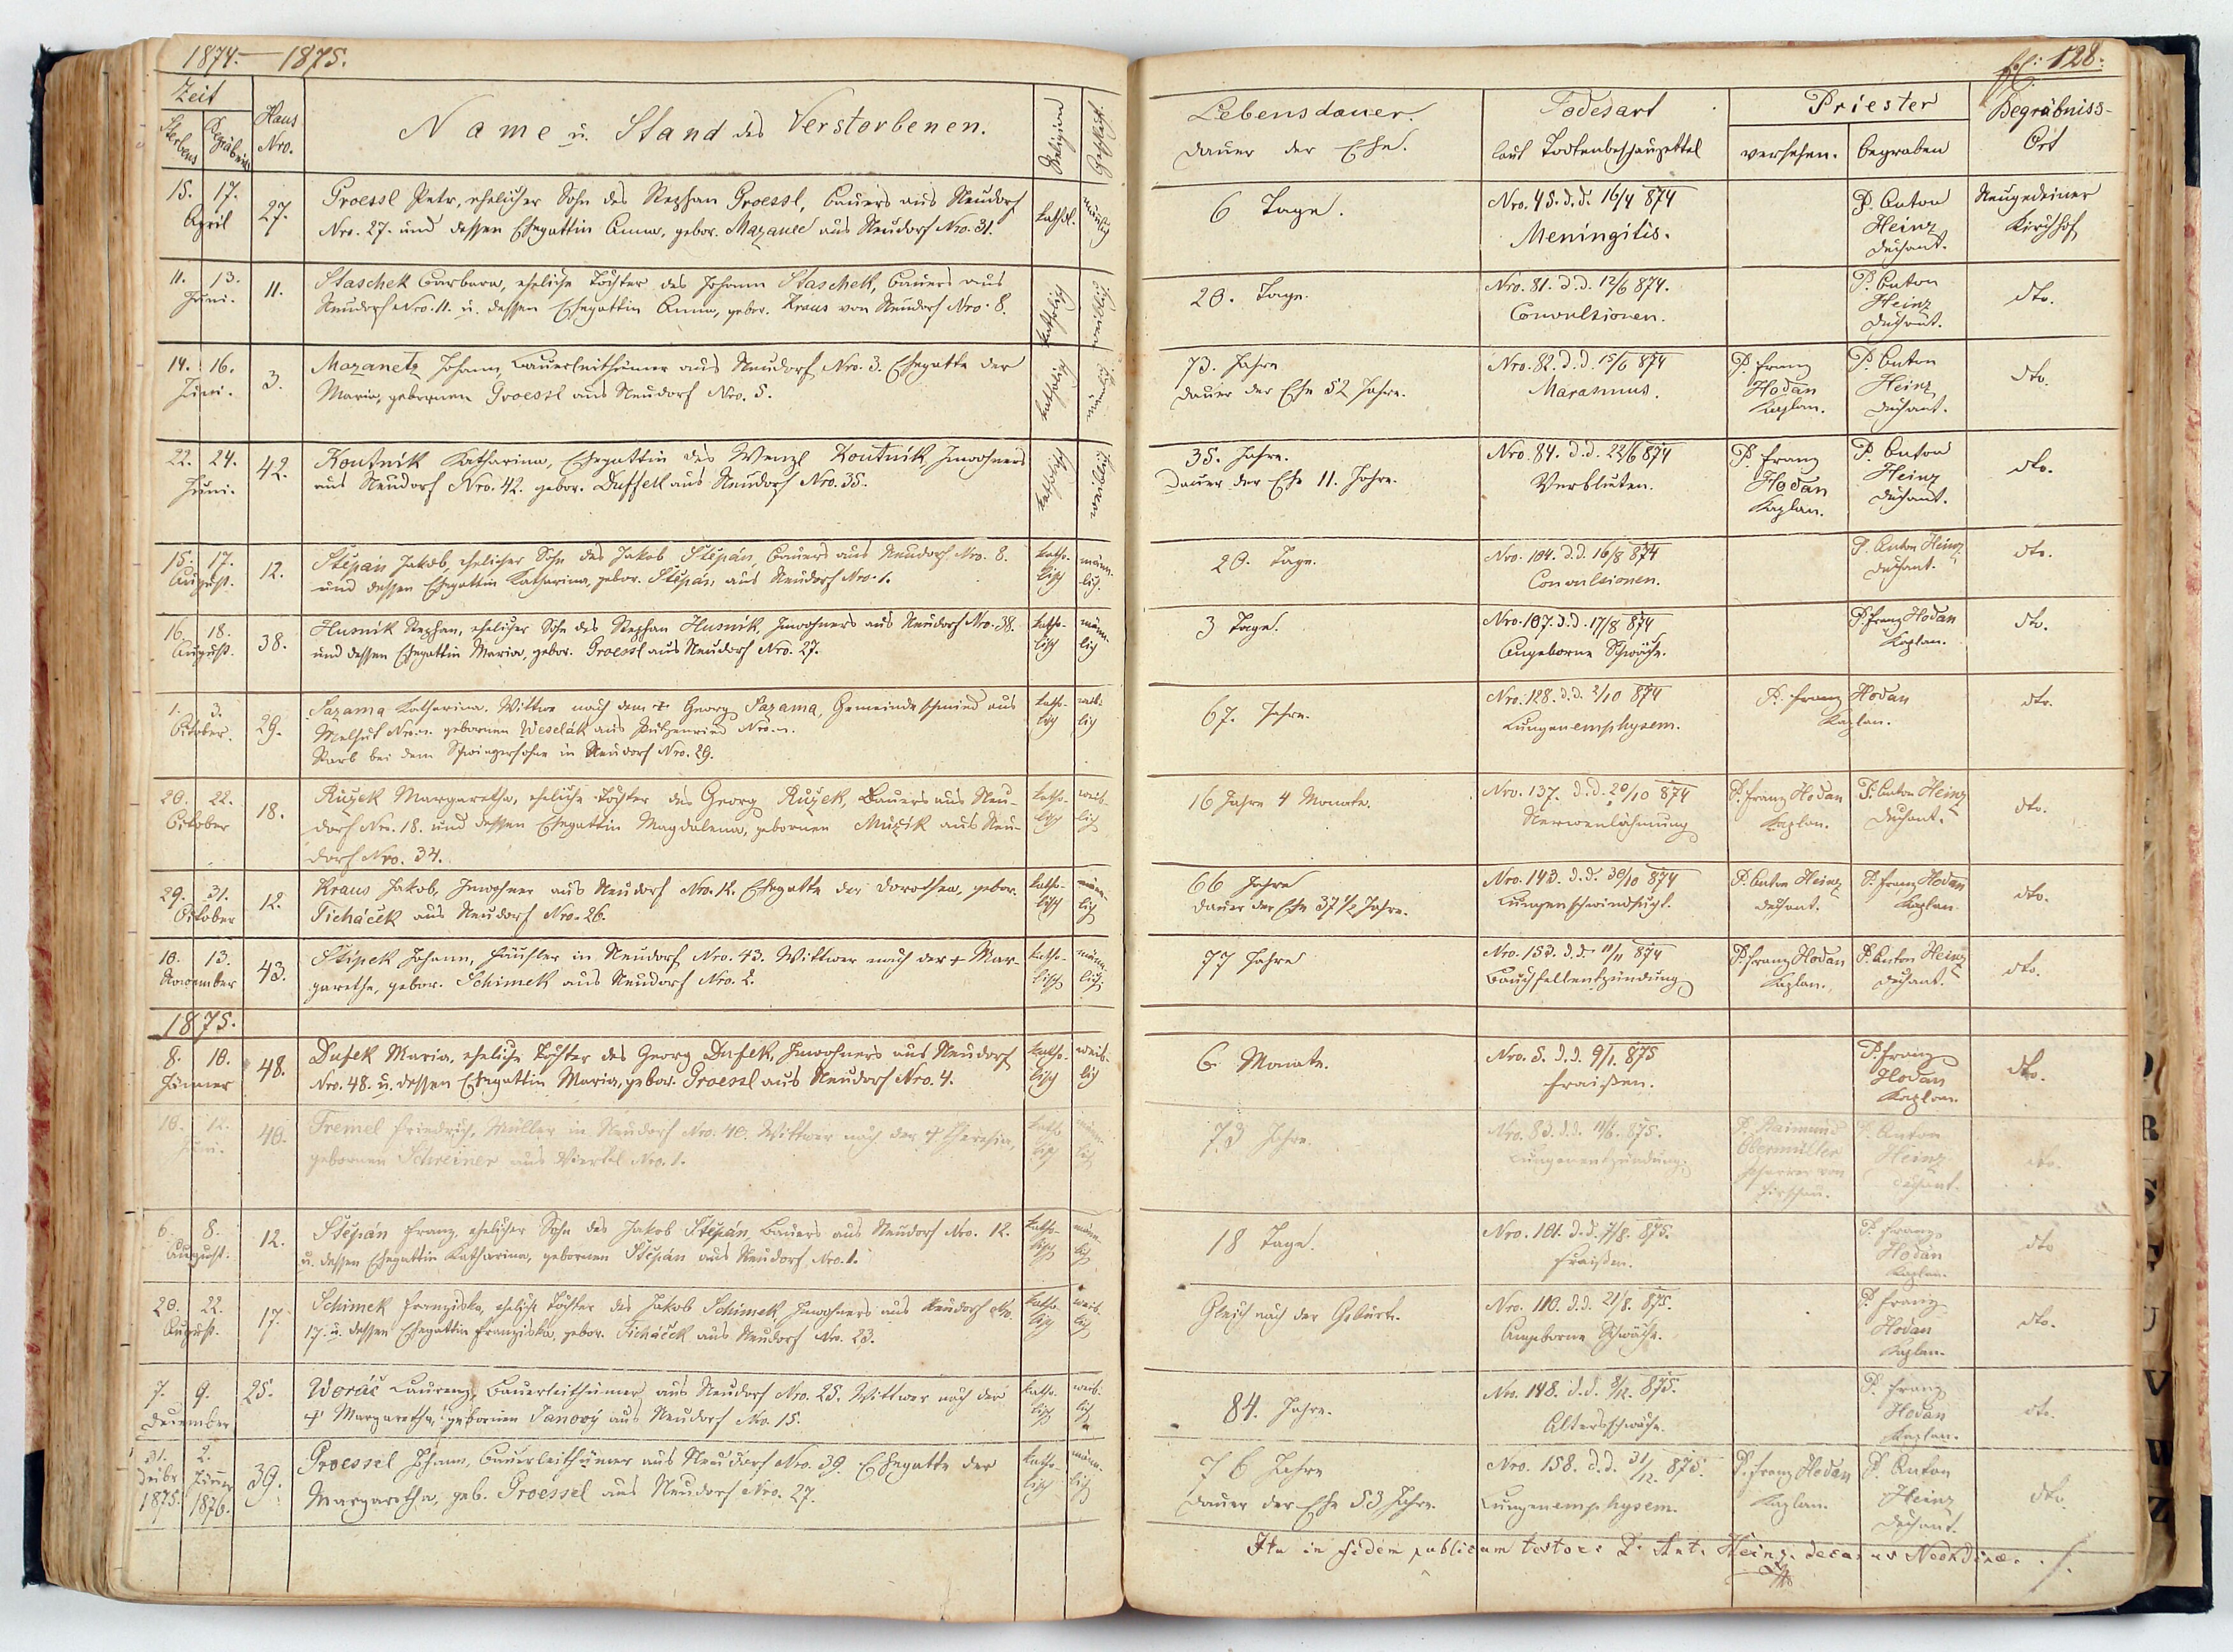 1874.— 1875.
Zeit
Sterbens
Begräbniss
Haus
Nro.
Name u. Stand des Verstorbenen.
Religion
Geschlecht.
15. 17.
April
27.
Groessl Petr, ehelicher Sohn des Stephan Groessl, Bauers aus Neudorf
Nro. 27. und dessen Ehegattin Anna, gebor. Mazanec aus Neudorf Nro. 31.
kathol.
männlich
11. 13.
Juni.
11.
Staschek Barbara, eheliche Tochter des Johann Staschek, Bauers aus
Neudorf Nro. 11. u. dessen Ehegattin Anna, gebor. Kraus von Neudorf Nro. 8.
katholisch
weiblich.
14. 16.
Juni.
3.
Mazanetz Johann, Bauerleithümer aus Neudorf Nro. 3. Ehegatte der
Maria, gebornen Groessl aus Neudorf Nro. 5.
katholisch
männlich
22. 24.
Juni.
42.
Koutnik Katharina, Ehegattin des Wenzl Koutnik, Inwohners
aus Neudorf Nro. 42. gebor. Duffek aus Neudorf Nro. 35.
katholisch
weiblich
15. 17.
August.
12.
Štěpán Jakob, ehelicher Sohn des Jakob Štěpán, Bauers aus Neudorf Nro. 8.
und dessen Ehegattin Katharina, gebor. Štěpán, aus Neudorf Nro. 1.
katho-
lisch
männ-
lich.
16. 18.
August.
38.
Husnik Stephan, ehelicher Sohn des Stephan Husnik, Inwohners aus Neudorf Nro. 38.
und dessen Ehegattin Maria, gebor. Groessl aus Neudorf Nro. 27.
katho-
lisch
männ-
lich
1. 3.
October.
29.
Sazama Katharina. Wittwe nach dem † Georg Sazama, Gemeindeschmied aus
Melhut Nro. n. gebornen Weselák aus Putzenried Nro. n.
Starb bei dem Schwiegersohne in Neudorf Nro. 29.
katho-
lisch
weib-
lich
20. 22.
October
18.
Ružek Margaretha, eheliche Tochter des Georg Ružek, Bauers aus Neu-
dorf Nro. 18. und dessen Ehegattin Magdalena, gebornen Mužik aus Neu-
dorf Nro. 34.
katho-
lisch
weib-
lich
29. 31.
October
12.
Kraus Jakob, Inwohner aus Neudorf Nro. 12. Ehegatte der Dorothea, gebor.
Ticháček aus Neudorf Nro. 26.
katho-
lisch
männ-
lich
10. 13.
November
43.
Štípek Johann, Häusler in Neudorf Nro. 43. Wittwer nach der † Mar-
garetha, gebor. Schimek aus Neudorf Nro. 2.
katho-
lisch
männ-
lich.
1875.
8. 10.
Jänner
48.
Dufek Maria, eheliche Tochter des Georg Dufek, Inwohners aus Neudorf
Nro. 48. u. dessen Ehegattin Maria, gebor. Groessl aus Neudorf Nro. 4.
katho-
lisch
weib-
lich
10. 12.
Juni.
40.
Fremel Friedrich, Müller in Neudorf Nro. 40. Wittwer nach der † Theresia,
gebornen Schreiner aus Viertel Nro. 1.
katho-
lisch
männ-
lich
6. 8.
August.
12.
Štěpán Franz, ehelicher Sohn des Jakob Štěpán, Bauers aus Neudorf Nro. 12.
u. dessen Ehegattin Katharina, gebornen Štěpán aus Neudorf Nro. 1.
katho-
lisch
männ-
lich
20. 22.
August.
17.
Schimek Franziska, eheliche Tochter des Jakob Schimek, Inwohners aus Neudorf Nro.
17. u. dessen Ehegattin Franziska, gebor. Ticháček aus Neudorf Nro. 23.
katho-
lisch
weib-
lich
7. 9.
December
25.
Woráč Laurenz, Bauerleithümer aus Neudorf Nro. 25. Wittwer nach der
† Margaretha, gebornen Janový aus Neudorf Nro. 15.
katho-
lisch
weib-
lich
31. 2.
Dezbr Jänner
1875. 1876.
39.
Groessel Johann, Bauerleithümer aus Neudorf Nro. 39. Ehegatte der
Margaretha, geb. Groessel aus Neudorf Nro. 27.
katho-
lisch
männ-
lich
fol: 128.
Lebensdauer.
Dauer der Ehe.
Todesart
laut Todtenbeschauzettel
Priester
versehen.
begraben
Begräbniss-
Ort
6 Tage.
Nro. 45. d. d. 16/4 874
Meningitis.
P. Anton
Heinz
Dechant.
Neugedeiner
Kirchhof
20. Tage.
Nro. 81. d. d. 12/6 874.
Convulsionen.
P. Anton
Heinz
Dechant.
dto.
73. Jahre
Dauer der Ehe 52 Jahre.
Nro. 82. d. d. 15/6 874
Marasmus.
P. Franz
Hodan
Kaplan.
P. Anton
Heinz
Dechant.
dto.
35. Jahre.
Dauer der Ehe 11. Jahre.
Nro. 84. d. d. 22/6 874
Verbluten.
P. Franz
Hodan
Kaplan.
P. Anton
Heinz
Dechant.
dto.
20. Tage.
Nro. 104. d. d. 16/8 874
Convulsionen.
P. Anton Heinz
Dechant.
dto.
3 Tage.
Nro. 107. d. d. 17/8 874
Angeborne Schwäche.
P. Franz Hodan
Kaplan.
dto.
67. Jahre.
Nro. 128. d. d. 2/10 874
Lungenemphysem.
P. Franz Hodan
Kaplan.
dto.
16 Jahre 4 Monate.
Nro. 137. d. d. 20/10 874
Nervenlähmung
P. Franz Hodan
Kaplan.
P. Anton Heinz
Dechant.
dto.
66 Jahre
Dauer der Ehe 37 1/2 Jahre.
Nro. 143. d. d. 30/10 874
Lungenschwindsucht.
P. Anton Heinz
Dechant.
P. Franz Hodan
Kaplan
dto.
77 Jahre
Nro. 153. d. d. 11/11 874
Bauchfellentzündung
P. Franz Hodan
Kaplan.
P. Anton Heinz
Dechant.
dto.
6 Monate.
Nro. 5. d. d. 9/1. 875
Fraisen.
P. Franz
Hodan
Kaplan.
dto.
73 Jahre.
Nro. 83. d. d. 11/6. 875.
Lungenentzündung.
P. Raimund
Obermüller
Pfarrer von
Hirschau.
P. Anton
Heinz
Dechant.
dto.
18 Tage.
Nro. 101. d. d. 7/8. 875.
Fraisen.
P. Franz
Hodan
Kaplan.
dto
Gleich nach der Geburt.
Nro. 110. d. d. 21/8. 875.
Angeborne Schwäche.
P. Franz
Hodan
Kaplan.
dto.
84. Jahre.
Nro. 148. d. d. 8/12. 875.
Altersschwäche.
P. Franz
Hodan
Kaplan.
dto.
76 Jahre
Dauer der Ehe 53 Jahre.
Nro. 158. d. d. 31/12. 875.
Lungenemphysem.
P. Franz Hodan
Kaplan.
P. Anton
Heinz
Dechant.
dto.
Ita in fidem publicam testor: P. Ant. Heinz, decanus
R
S
U
V
W
Z